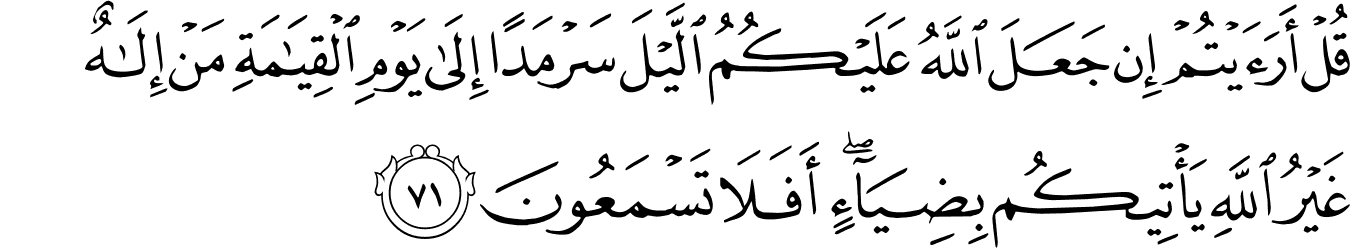 قُلْ أَرَءَيْتُمْ إِن جَعَلَ ٱللَّهُ عَلَيْكُمُ ٱلَّيْلَ سَرْمَدًا إِلَىٰ يَوْمِ ٱلْقِيَـٰمَةِ مَنْ إِلَـٰهٌ
غَيْرُ ٱللَّهِ يَأْتِيكُم بِضِيَآءٍ ۖ أَفَلَا تَسْمَعُونَ ٧١